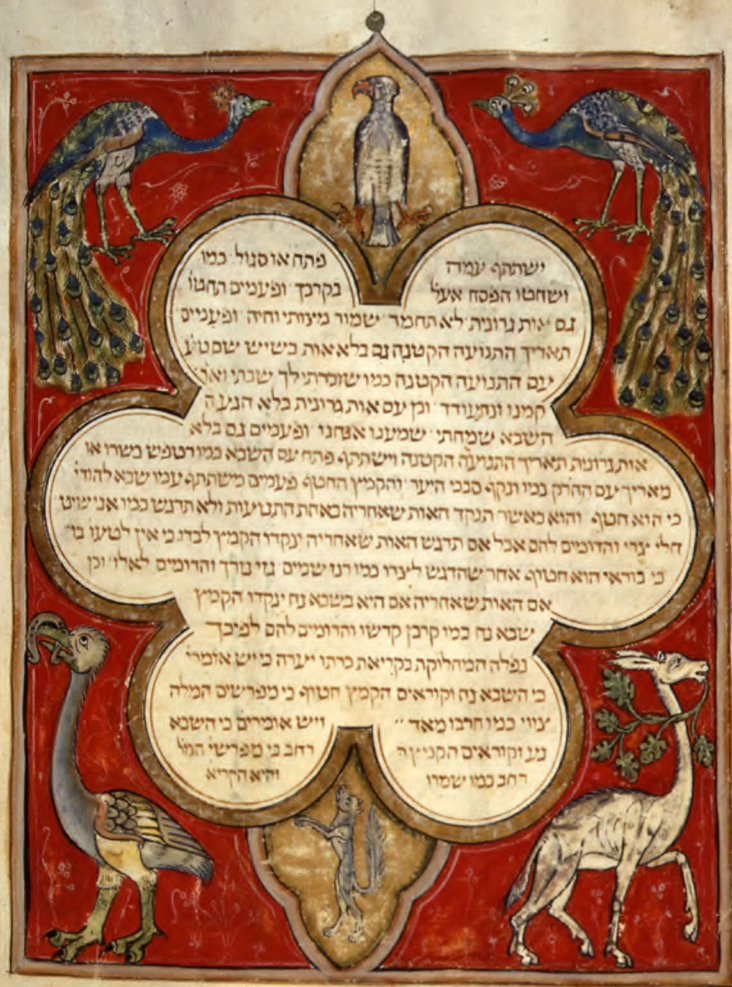 ישתתף עמה פתח או סגול כמו
ושחטו הפסח בקרבך ופעמים
גם אות גרונית לא תחמד שמור מצותי וחיה ופעמים
תאריך התנועה הקטנה גם בלא אות בשיש שם
עם התנועה הקטנה כמו שזכרתי לך שבתי
קמנו ונתעודד וכן עם אות גרונית בלא הנעה
השבא שמחתי שמענו אנחנו ופעמים גם בלא
אות גרונית תאריך התנועה הקטנה וישתתף פתח עם השבא כמו רטפש בשרו או
מאריך עם החרק כמו ונקף סבכי היער והקמץ החטף פעמים משתתף עמו שבא להודי'
כי הוא חטוף והוא כאשר תנקד האות שאחריה באחת התנועות ולא תדגש כמו
חלי צרי והדומים להם אבל אם תדגש האות שאחריה ינקדו הקמץ לבדו כי אין לטעו בו
כי בודאי הוא חטוף אחר שהדגש ליצדו כמו רנו שמים גזי נזרך והדומים לאלו וכן
אם האות שאחריה אם היא בשבא נח ינקדו הקמץ
שבא נח כמו קרבן קדשו והדומים להם לפיכך
נפלה המחלוקת בקריאת כרתו יערה כי יש אומרי'
כי השבא נח וקוראים הקמץ חטוף כי מפרשים המלה
צווי כמו חרבו מאד ויש אומרים כי השבא
נע וקוראים הקמץ רחב כי מפרשי' המל'
רחב כמו שמרו והיא הקריא